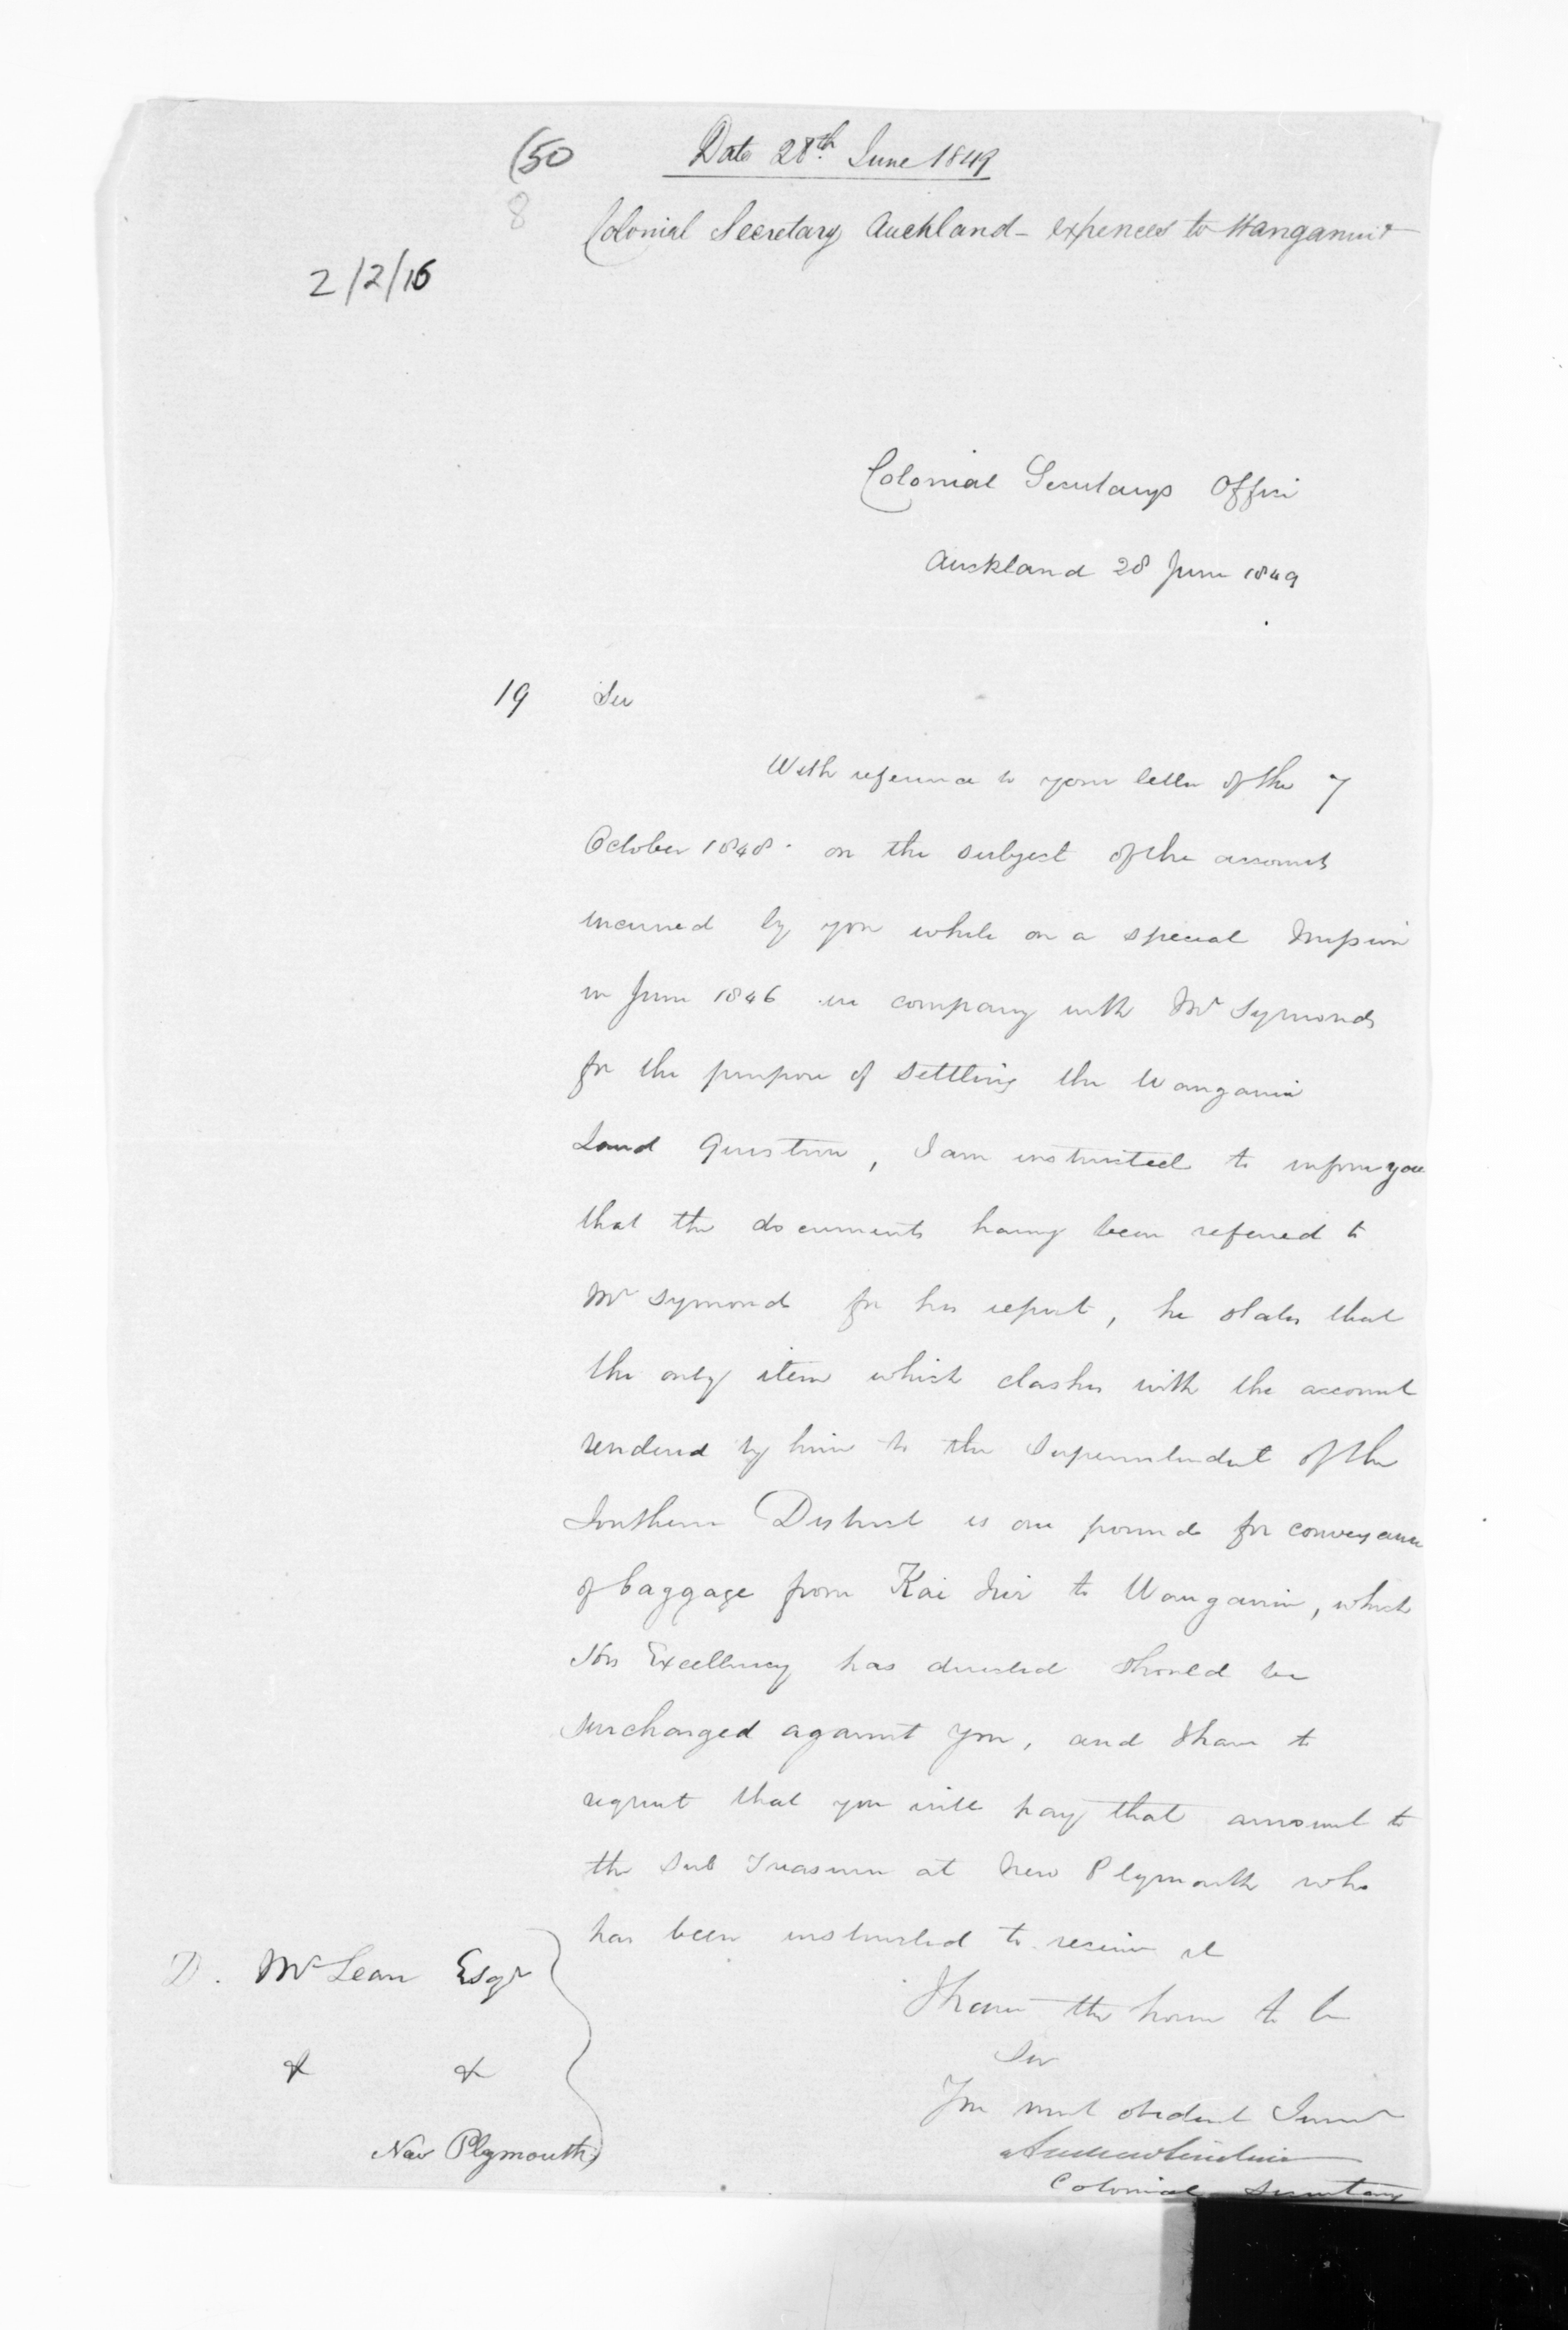 (50
Date 28th June 1849
8
Colonial Secretary Auckland - expences to Wanganui
2/2/16
Colonial Secretarys Office
Auckland 28 June 1849
19 Sir
With reference to your letter of the 7
October 1848. on the subject of the accounts
incurred by you while on a special Mission
in June 1846 in company with Mr Symonds
for the purpose of settling the Wanganui
Land Question, I am instructed to inform you
that the documents having been referred to
Mr Symond for his report, he states that
the only item which clashes with the account
rendered by him to the Superintendent of the
Southern District is one pound for conveyance
of baggage from Kai Iwi to Wanganui, which
His Excellency has directed should be
surcharged against you, and I have to
request that you will pay that amount to
the Sub Treasurer at New Plymouth who
has been instructed to receive it
I have the honor to be
Sir
Your most obedient Servant
Andrew Sinclair
Colonial Secretary
D. McLean Esqr
& &
New Plymouth